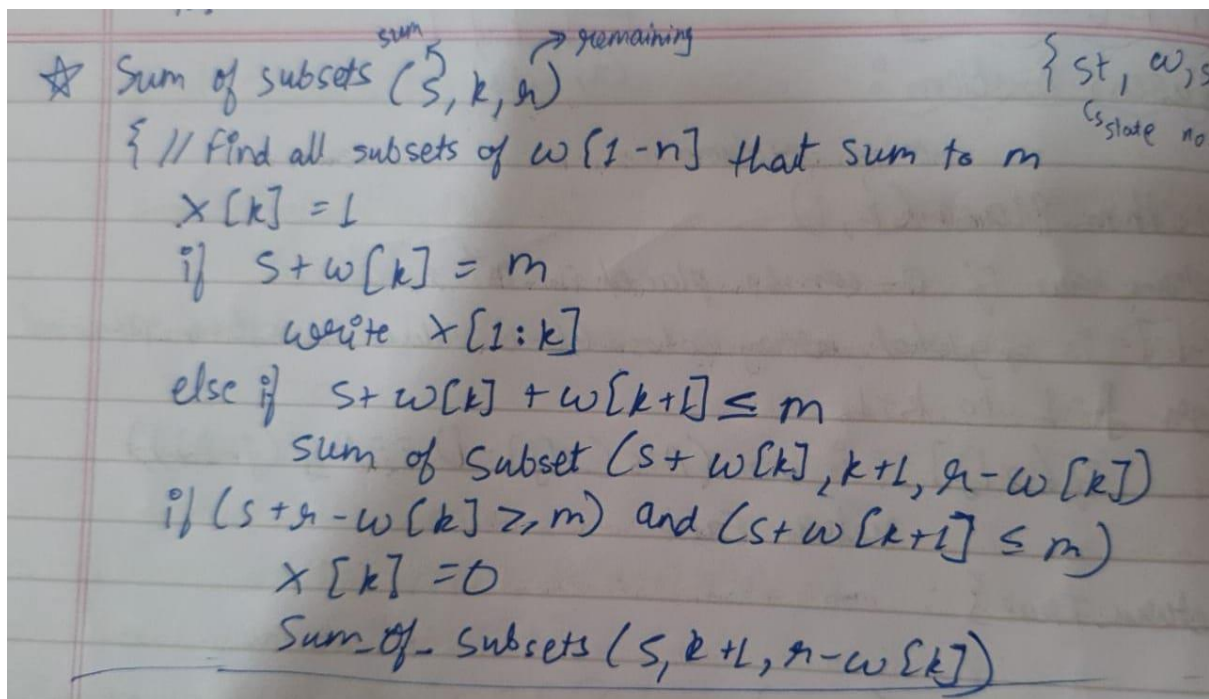 sum → remaining
☆ Sum of subsets (s, k, r) { st, w, s
↳ state no
{ // Find all subsets of w[1-n] that sum to m
x[k] = 1
if s + w[k] = m
write x[1:k]
else if s + w[k] + w[k+1] ≤ m
sum of subset (s + w[k], k+1, r-w[k])
if (s + r - w[k] ≥ m) and (s + w[k+1] ≤ m)
x[k] = 0
Sum_of_subsets (s, k+1, r-w[k])